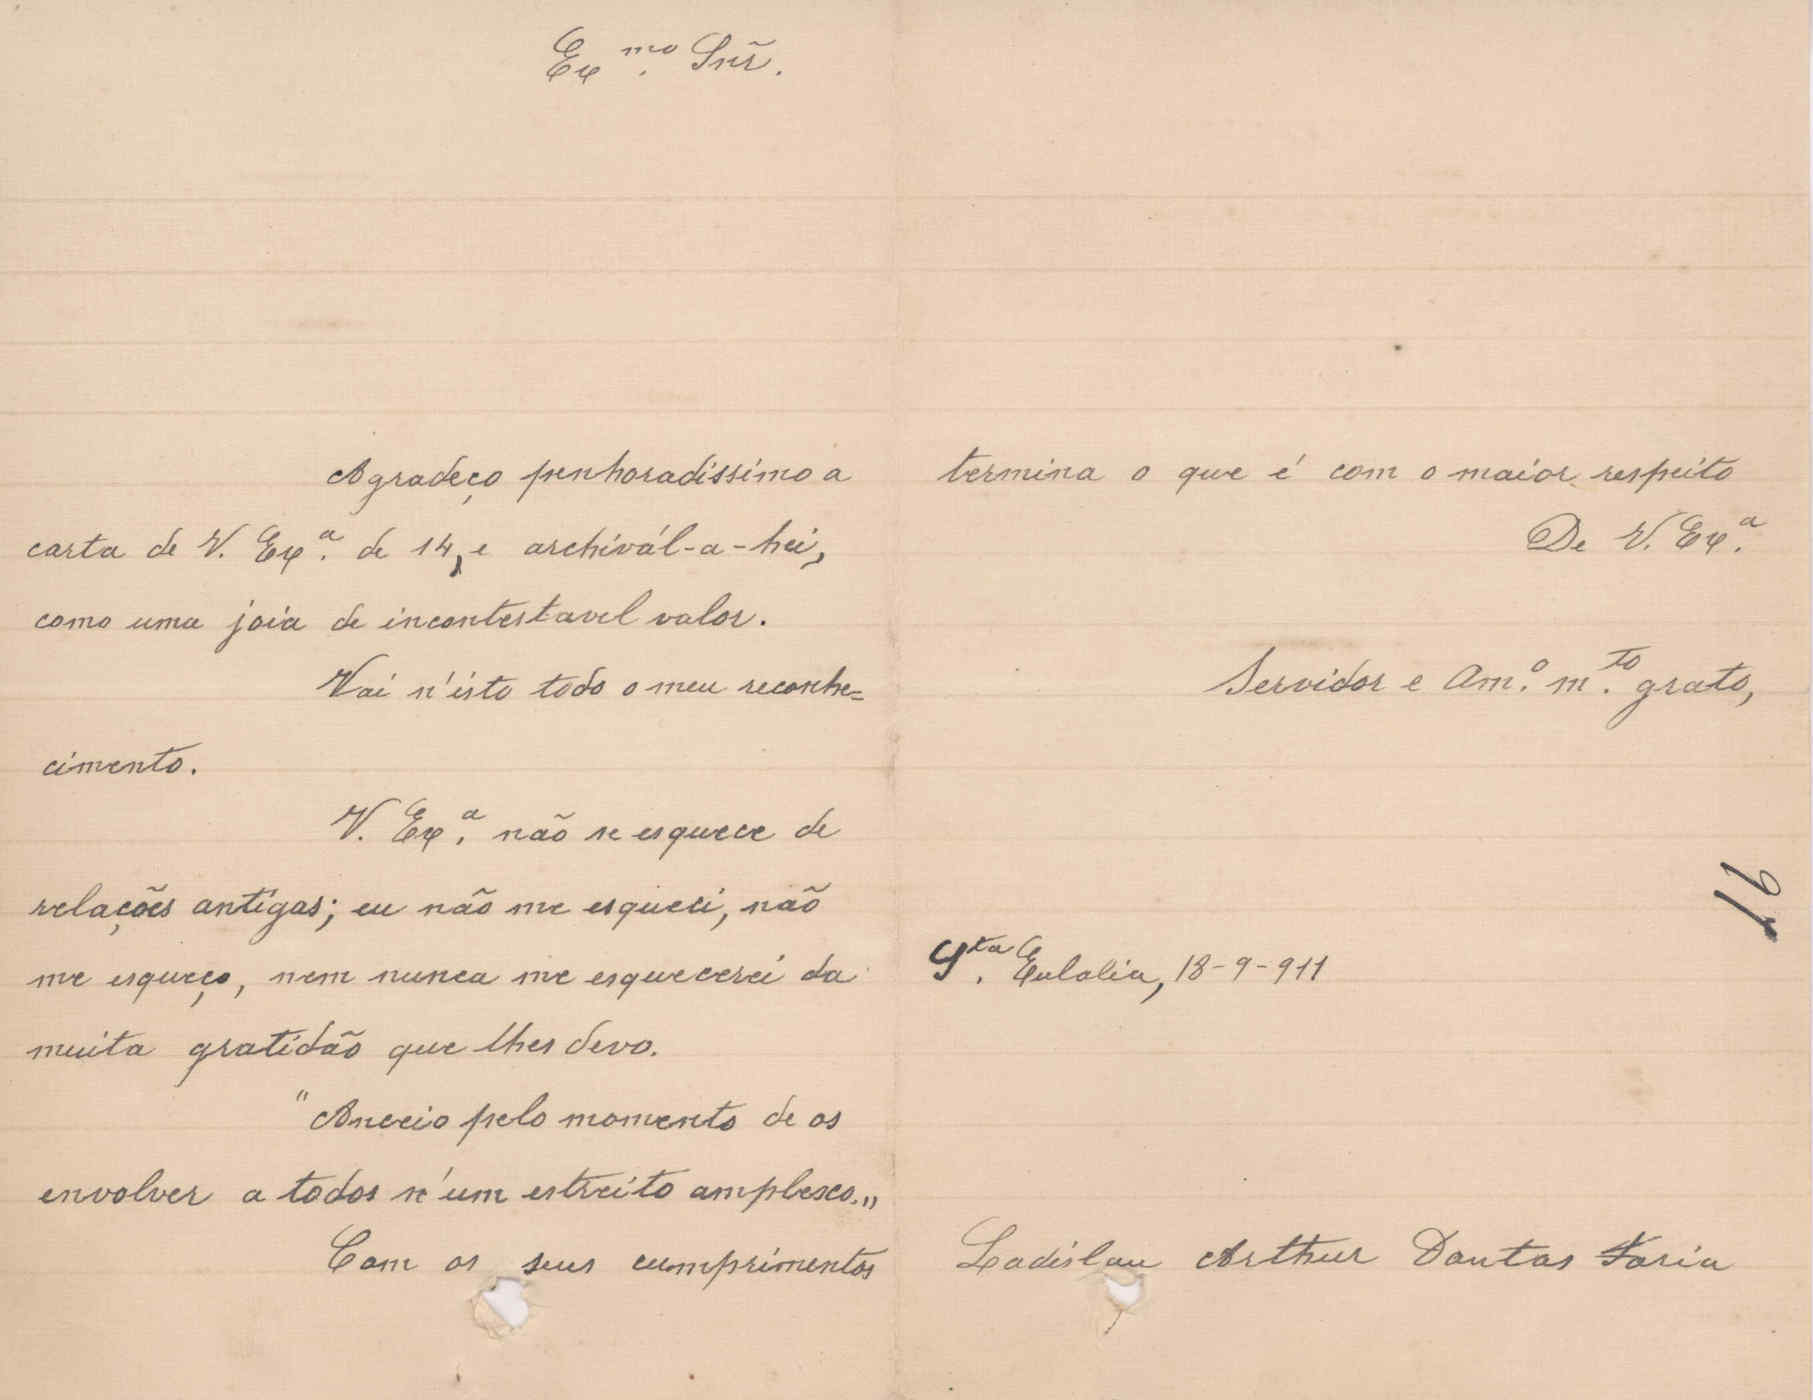 Ex.mo Snr̃.
Agradeço penhoradissimo a
carta de V. Ex.a de 14, e archivál-a-hei,
como uma joia de incontestavel valor.
Vai n'isto todo o meu reconhe=
cimento.
V. Ex.a não se esquece de
relações antigas; eu não me esqueci, não
me esqueço, nem nunca me esquecerei da
muita gratidão que lhes devo.
"Anceio pelo momento de os
envolver a todos n'um estreito amplexo.„
Com os seus cumprimentos
termina o que é com o maior respeito
De V. Ex.a
Servidor e Am.o m.to grato,
S.ta Eulalia, 18-9-911
Ladislau Arthur Dantas Faria